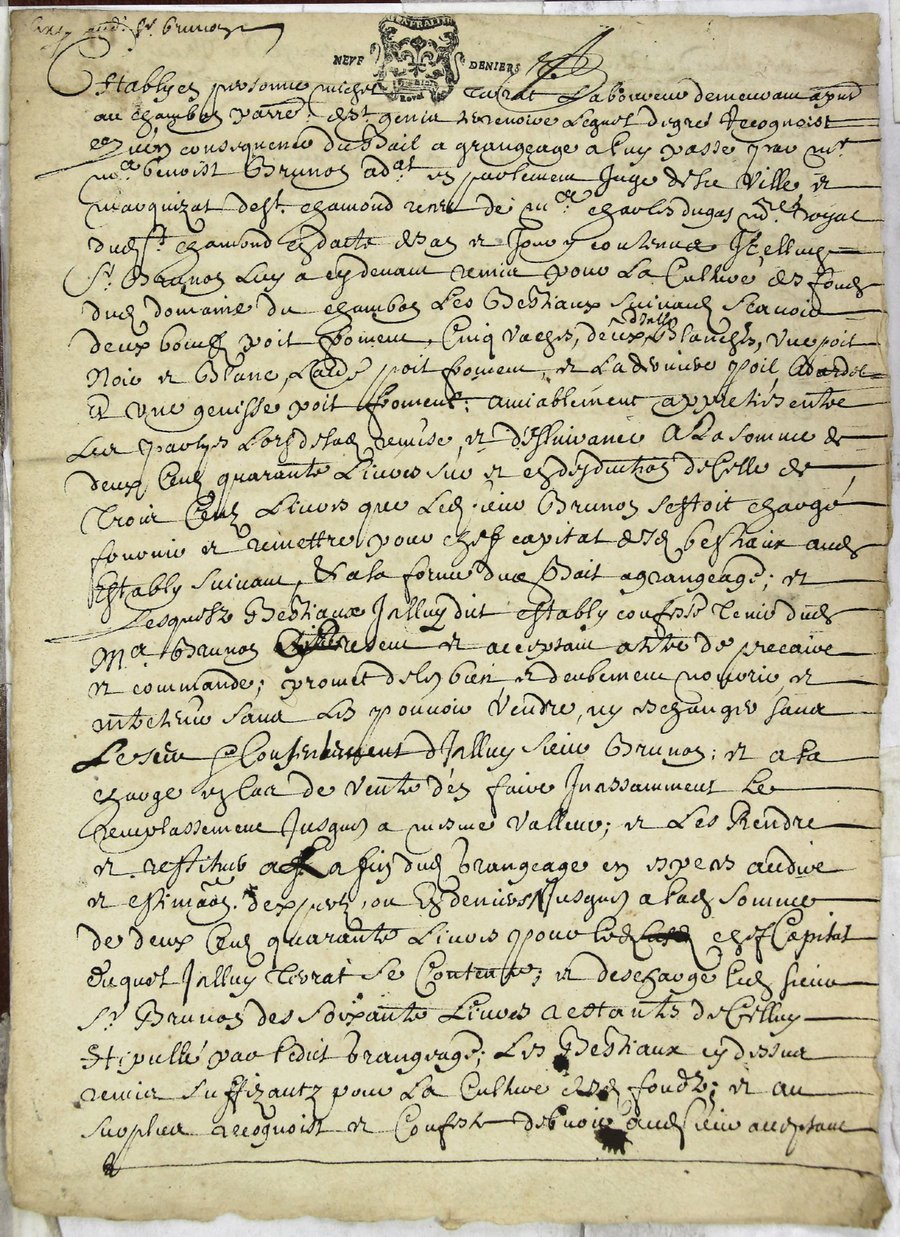 audt Sr. brunon
NEUF DENIERS
Estably en personne michel Tivrat Laboureur demeurant a pnt
au chambon parre. de St. genis terrenoire Lequel de gré Recognoist
qu'en consequence du Bail a grangeage a luy passé par Mr.
Me benoist Brunon adat en parlement Juge de la Ville et
marquizat de St. chamond receu de me charles dugas nore Royal
dud St. chamond en datte de ce Jour y contenue Icelluy
Sr. Brunon Luy a cy devant remis pour La Culture des fonds
dud domaine du chambon Les Bestiaux Suivants Scavoir
deux boeufs poil froment, Cinq vaches, deux d'elles blanches, Une poil
Noir et Blanc, L'autre poil froment, et La derniere poil
Et une genisse poil froment; amiablement appretiés entre
Les partyes Lors de lad remise, et d'Essuivance A La somme de
deux Cents quarante Livres sur et en deduction de Celle de
Trois Cents Livres que Led sieur Brunon s'estoit chargé
fournir et remettre pour chef capital desd bestiaux aud
Estably Suivant, & a la forme dud Bail a grangeage; et
Lesquels Bestiaux Icelluy dit estably confesse Tenir dud
Me. Brunon present et acceptant a titre de precaire
et commande; promet de les bien et deubement nourrir, et
entretenir sans Les pouvoir Vendre, ny eschanger sans
Le sceu & Consentement d'Icelluy sieur Brunon; et a la
charge en cas de Vente d'en faire Incessamment Le
remplassement Jusques a mesme Valleur; et Les Rendre
et restituer a La fin dud Grangeage en especes au dire
et estimaon. d'experts, ou En deniers Jusques a lad Somme
de deux Cents quarante Livres pour led chef Capital
duquel Icelluy Tivrat Se Contente; et descharge led sieur
Sr. Brunon des Soixante Livres restants de Celluy
Stipullé par ledit Grangeage; Les Bestiaux cy dessus
remis Suffizantz pour La Culture desd fondz; et au
surplus recognoist et Confesse debvoir aud sieur acceptant